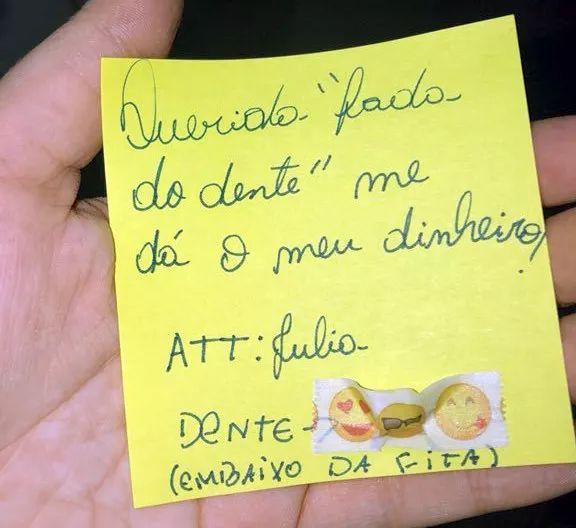 Querida "fada
do dente" me
dá o meu dinheiro!
ATT: Julia
DENTE-
(EMBAIXO DA FITA)